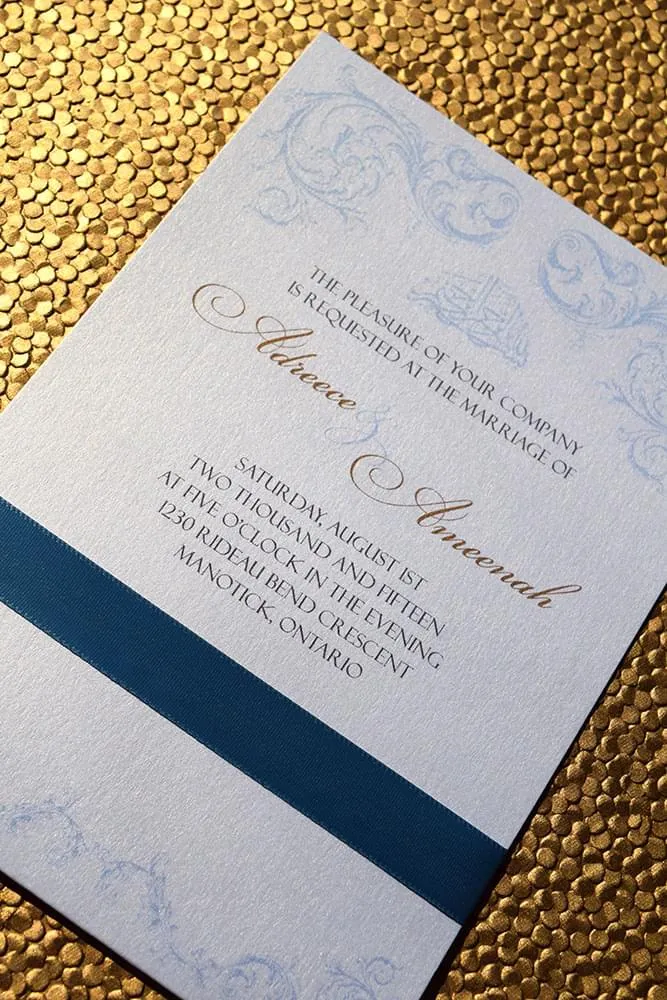 THE PLEASURE OF YOUR COMPANY
IS REQUESTED AT THE MARRIAGE OF
Adreece
&
Ameenah
SATURDAY, AUGUST 1ST
TWO THOUSAND AND FIFTEEN
AT FIVE O'CLOCK IN THE EVENING
1230 RIDEAU BEND CRESCENT
MANOTICK, ONTARIO